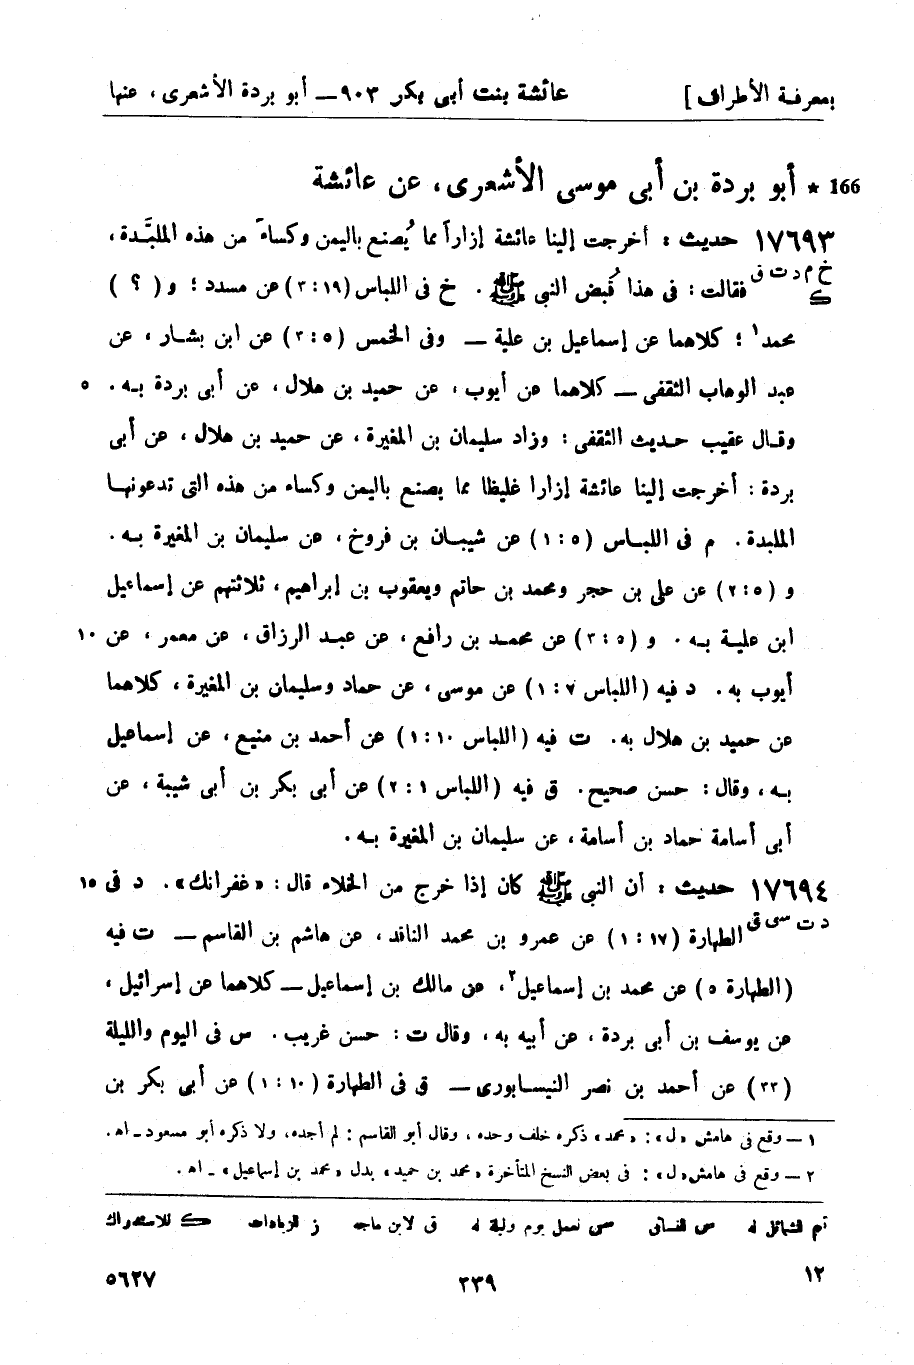 بمعرفة الأطراف] عائشة بنت أبى بكر ٩٠٣ — أبو بردة الأشعرى ، عنها
166 * أبو بردة بن أبى موسى الأشعرى، عن عائشة
١٧٦٩٣ حديث : أخرجت إلينا عائشة إزاراً مما يُصنع باليمن وكساءً من هذه الملبَّدة ،
خ م د ت ق
ك فقالت : فى هذا قُبض النبى ﷺ . خ فى اللباس (١٩ : ٣) عن مسدد ؛ و ( ؟ )
محمد١ ؛ كلاهما عن إسماعيل بن علية — وفى الخمس (٥ : ٣) عن ابن بشار ، عن
عبد الوهاب الثقفى — كلاهما عن أيوب ، عن حميد بن هلال ، عن أبى بردة به . ٥
وقال عقيب حديث الثقفى : وزاد سليمان بن المغيرة ، عن حميد بن هلال ، عن أبى
بردة : أخرجت إلينا عائشة إزارا غليظا مما يصنع باليمن وكساء من هذه التى تدعونها
الملبدة . م فى اللباس (٥ : ١) عن شيبان بن فروخ ، عن سليمان بن المغيرة به .
و (٥ : ٢) عن على بن حجر ومحمد بن حاتم ويعقوب بن إبراهيم ، ثلاثتهم عن إسماعيل
ابن علية به . و (٥ : ٣) عن محمد بن رافع ، عن عبد الرزاق ، عن معمر ، عن ١٠
أيوب به . د فيه (اللباس ٧ : ١) عن موسى ، عن حماد وسليمان بن المغيرة ، كلاهما
عن حميد بن هلال به . ت فيه (اللباس ١٠ : ١) عن أحمد بن منيع ، عن إسماعيل
به ، وقال : حسن صحيح . ق فيه (اللباس ١ : ٢) عن أبى بكر بن أبى شيبة ، عن
أبى أسامة حماد بن أسامة ، عن سليمان بن المغيرة به .
١٧٦٩٤ حديث : أن النبى ﷺ كان إذا خرج من الخلاء قال : «غفرانك» . د فى ١٥
د ت سى ق الطهارة (١٧ : ١) عن عمرو بن محمد الناقد ، عن هاشم بن القاسم — ت فيه
(الطهارة ٥) عن محمد بن إسماعيل٢ ، عن مالك بن إسماعيل — كلاهما عن إسرائيل ،
عن يوسف بن أبى بردة ، عن أبيه به ، وقال ت : حسن غريب . س فى اليوم والليلة
(٣٣) عن أحمد بن نصر النيسابورى — ق فى الطهارة (١٠ : ١) عن أبى بكر بن
١ — وقع فى هامش «ل» : «محمد» ذكره خلف وحده ، وقال أبو القاسم : لم أجده، ولا ذكره أبو مسعود - اه .
٢ — وقع فى هامش «ل» : فى بعض النسخ المتأخرة «محمد بن حميد» بدل «محمد بن إسماعيل» - اه .
تم الشمائل له س النسائى سى لعمل يوم وليلة له ق لابن ماجه ز الزيادات ك للاستدراك
١٢ ٣٣٩ ٥٦٢٧